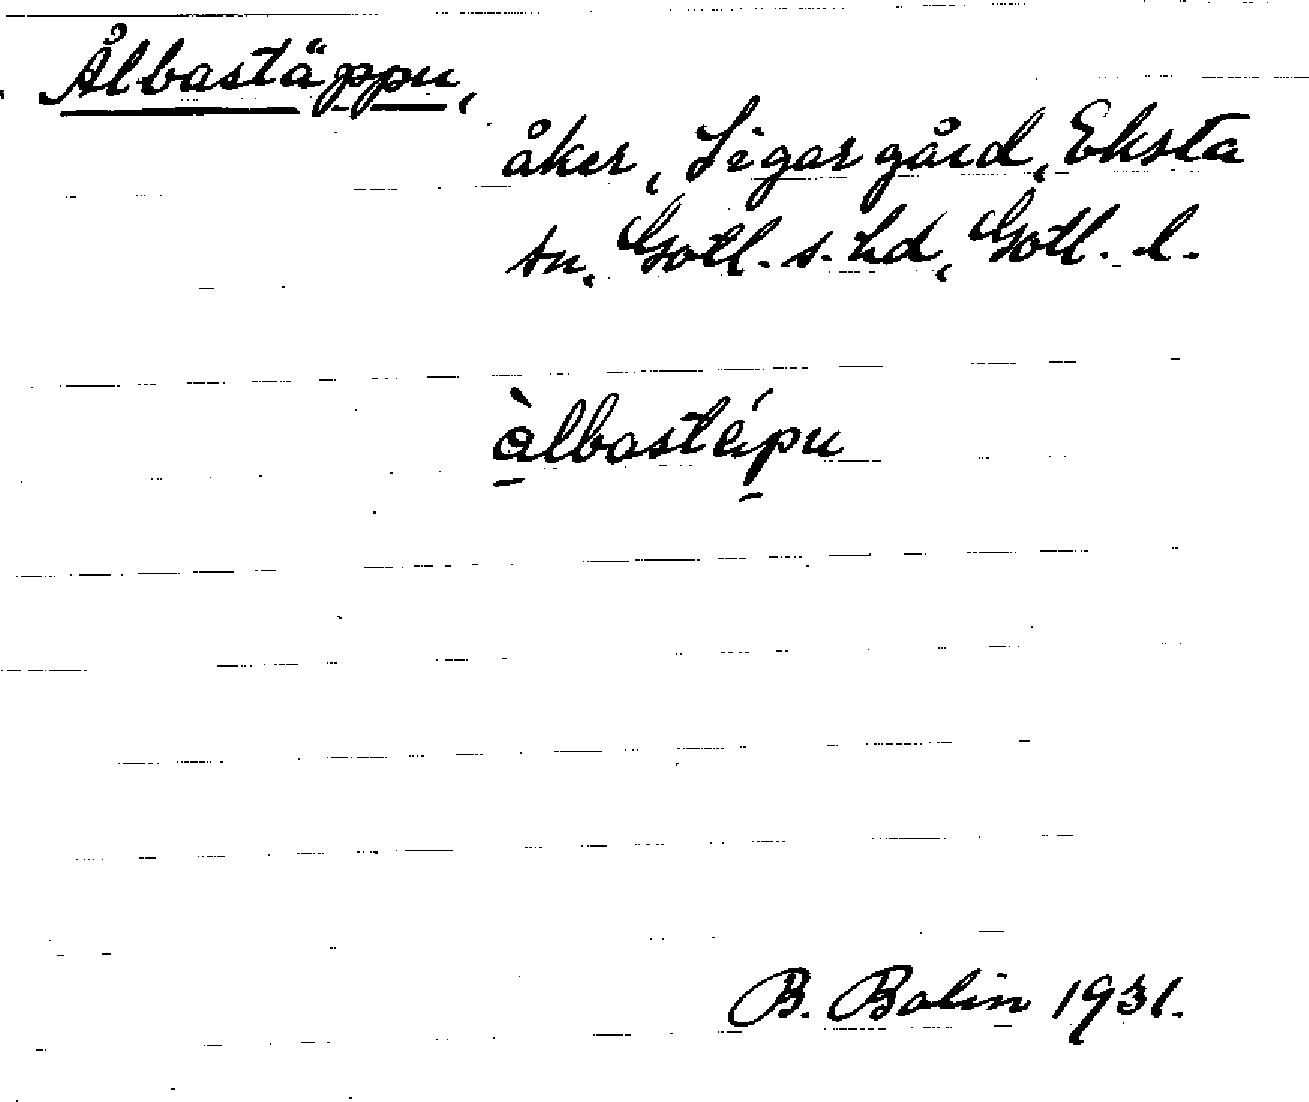 Ålbastäppu,
åker, Sigar gård, Eksta
sn, Gotl. s. hd, Gotl. l.
àlbastépu
B. Bolin 1931.